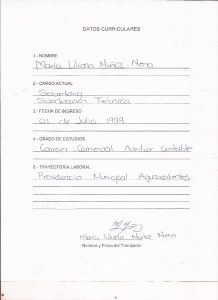 DATOS CURRICULARES
1.- NOMBRE
María Liliana Muñoz Neria
2.- CARGO ACTUAL
Secretaria
Coordinación Técnica
3.- FECHA DE INGRESO
01 de Julio 1999
4.- GRADO DE ESTUDIOS
Carrera Comercial Auxiliar Contable
5.- TRAYECTORIA LABORAL
Presidencia Municipal Aguascalientes
María Liliana Muñoz Neria
Nombre y Firma del Trabajador